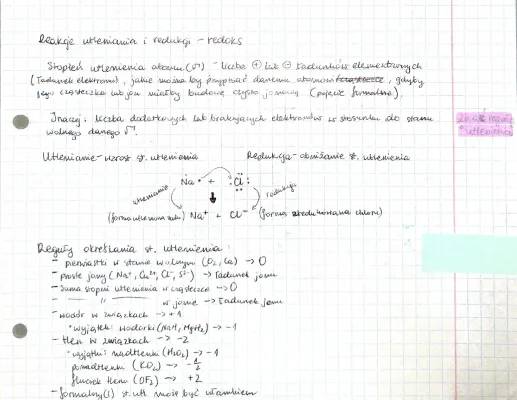 Reakcje utleniania i redukcji - redoks
Stopień utlenienia atomu (√) - liczba ⊕ lub ⊖ ładunków elementarnych
(ładunek elektronu), jakie można by przypisać danemu atomowi, gdyby
jego cząsteczka lub jon miałby budowę czysto jonową (pojęcie formalne).
Inaczej: liczba dodatkowych lub brakujących elektronów w stosunku do stanu
wolnego danego √.
Utlenianie - wzrost st. utlenienia Redukcja - obniżanie st. utlenienia
Na• + :Cl:
utlenianie redukcja
(forma utleniona sodu) Na⁺ + Cl⁻ (forma zredukowana chloru)
Reguły określania st. utlenienia:
- pierwiastki w stanie wolnym (O₂, Ca) → 0
- proste jony (Na⁺, Ca²⁺, Cl⁻, S²⁻) → ładunek jonu
- Suma stopni utlenienia w cząsteczce → 0
- —— " —— w jonie → ładunek jonu
- wodór w związkach → +1
* wyjątek: wodorki (NaH, MgH₂) → -1
- tlen w związkach → -2
* wyjątki: nadtlenki (H₂O₂) → -1
ponadtlenki (KO₂) → -1/2
fluorek tlenu (OF₂) → +2
- formalny(!) st. utl. może być ułamkiem